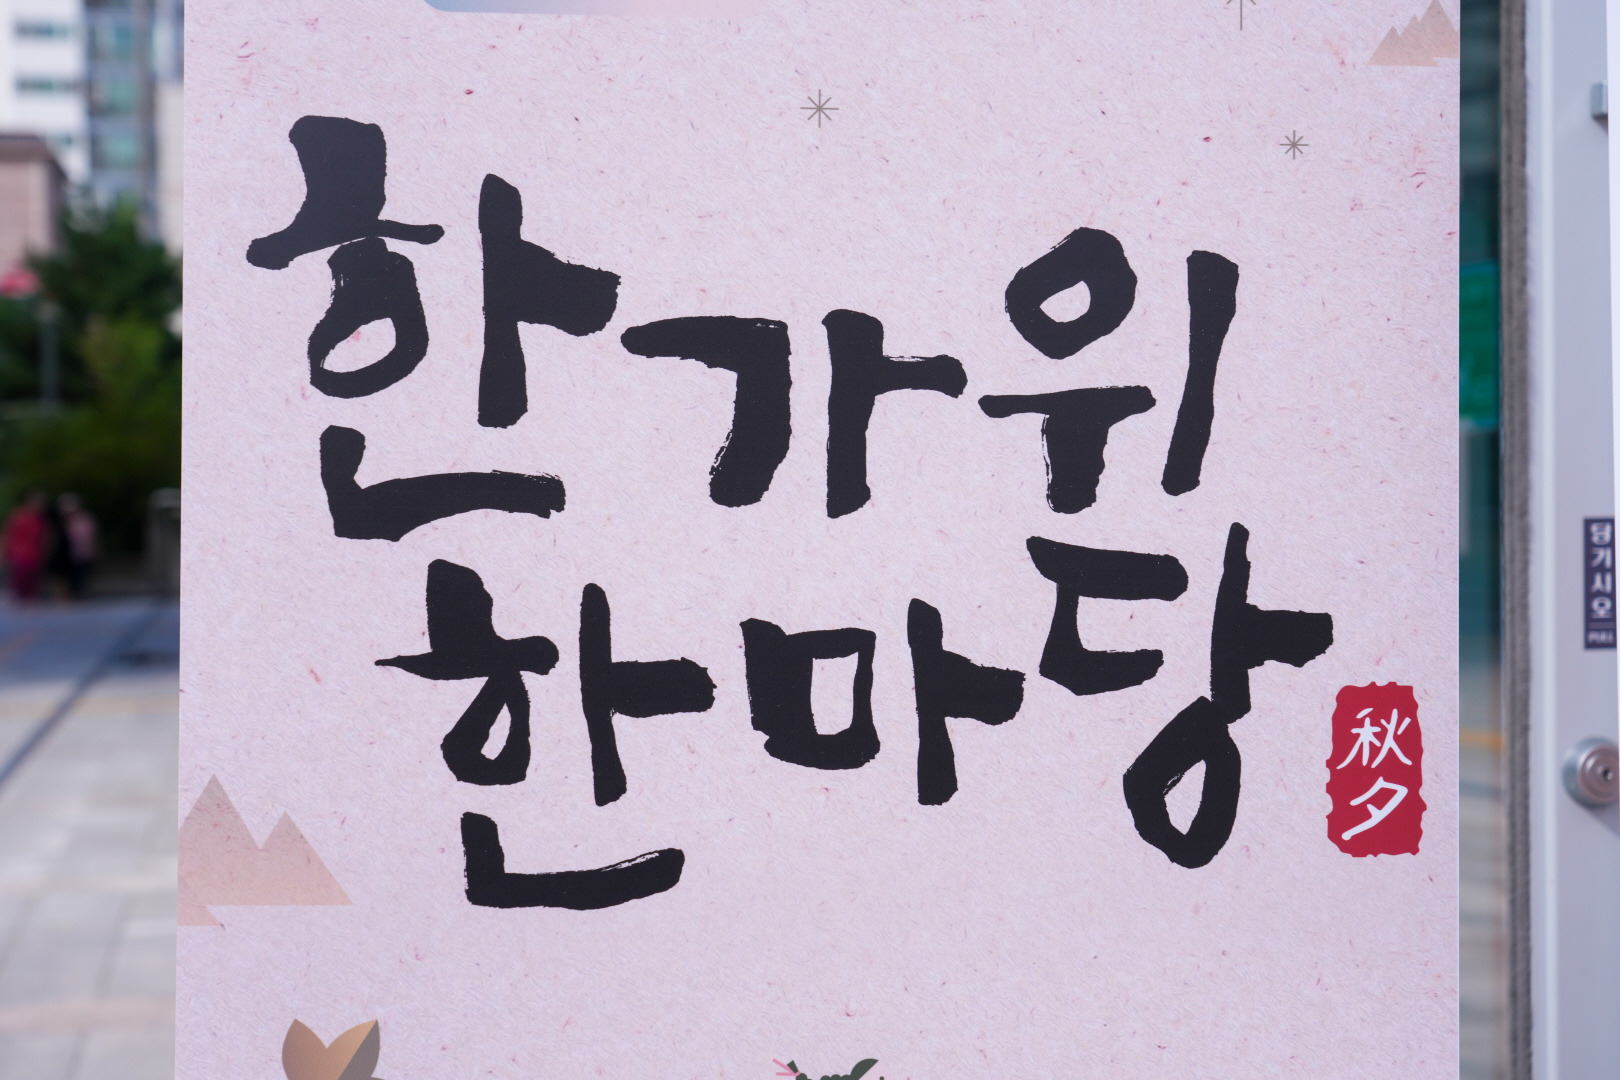 한가위
한마당
秋夕
당기시오
PULL